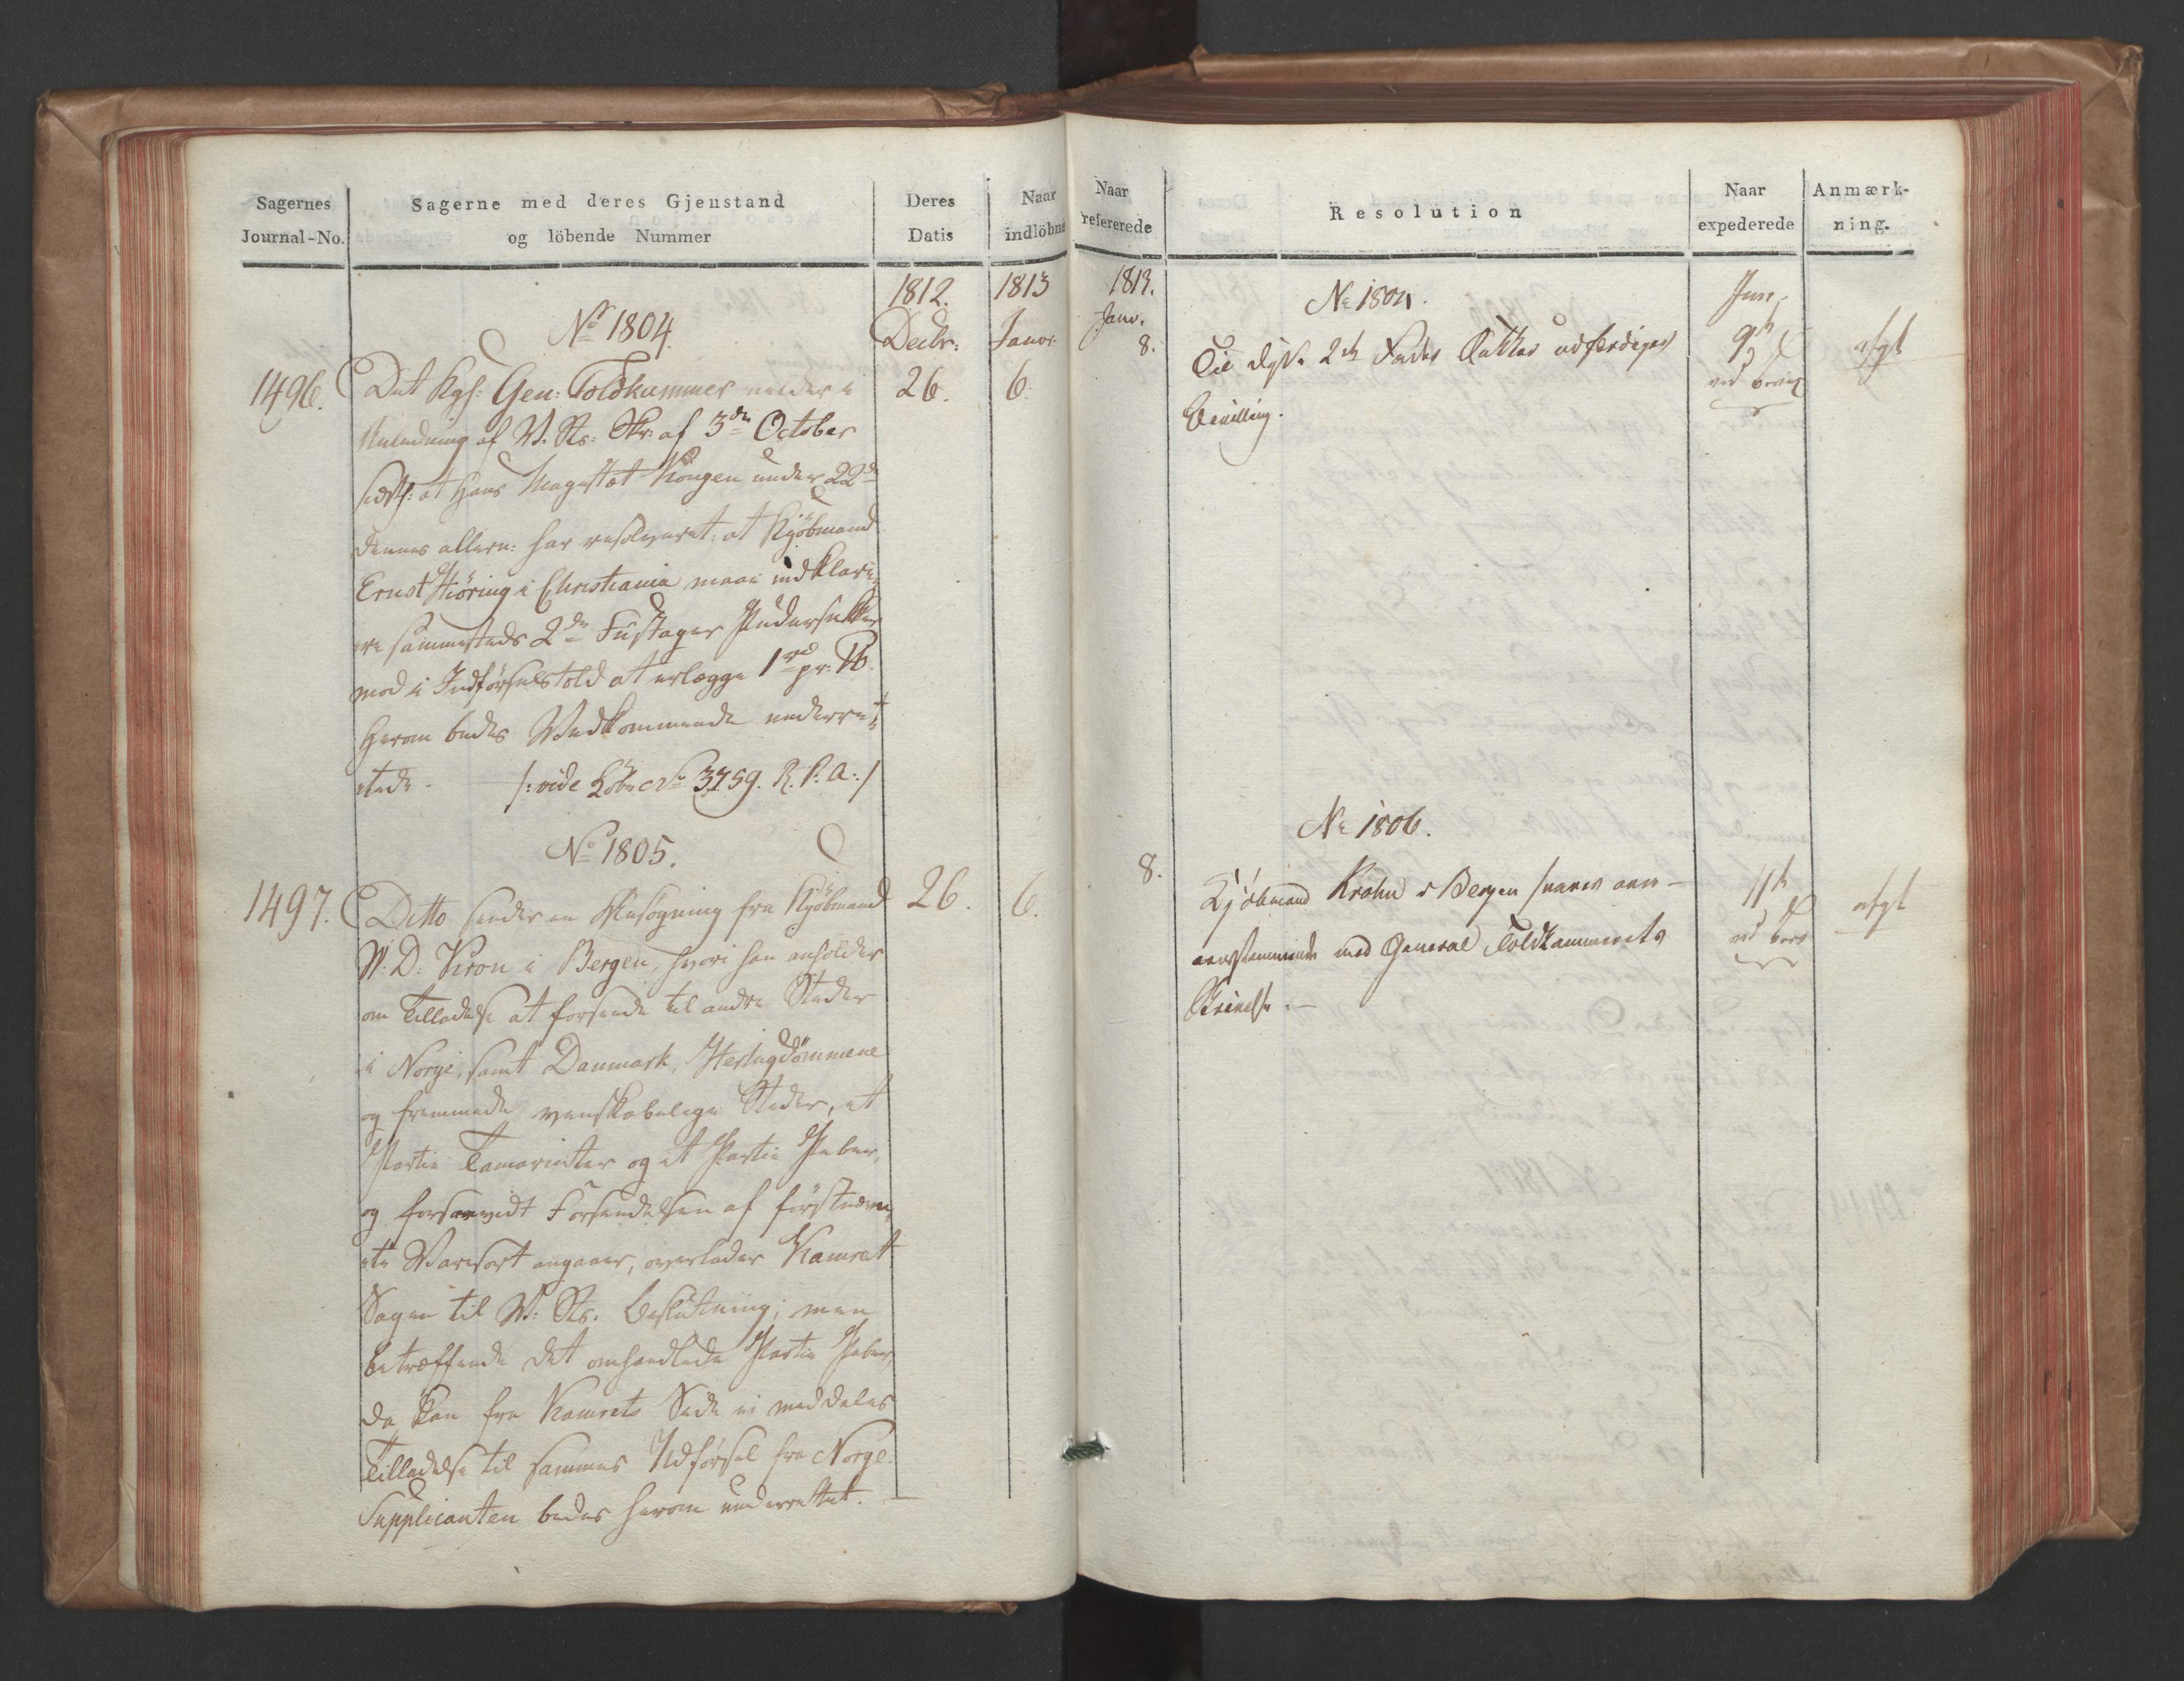 Sagernes
Journal-No.
Sagerne med deres Gjenstand
og löbende Nummer
Deres
Datis
Naar
indlöbne
1812.
Decbr:
1813
Januar
No 1804.
1496.
Det kgl: Gen: Toldkammer melder i
26.
6.
Anledning af V. Rs: Skr: af 3die October
sidstl: at Hans Majestæt Kongen under 22de
dennes allern: har resolveret: at Kjöbmand
Ernst Thöring i Christiania maae indklare,,
re sammesteds 2de Fustager Pudersukker
mod i Indförselstold at erlægge 1rd pr: lb.
Herom bedes Vedkommende underret,,
tede. /:vide Löbe No 3759. R. P. A:/
No 1805.
1497.
Ditto sender en Ansögning fra Kjöbmand
26.
6.
W: D: Kron i Bergen, hvori han anholder
om Tilladelse at forsende til andre Steder
i Norge, samt Danmark, Hertugdömmene
og fremmede venskabelige Steder, et
Partie Tamarinter og et Partie Peber,
og forsaavidt Forsendelsen af förstnævn,,
te Varesort angaaer, overlader Kamret
Sagen til V: Rs. Beslutning; men
betræffende det omhandlede Partie Peber,
da kan fra Kamrets Side ei meddeles
Tilladelse til sammes Udförsel fra Norge.
Supplicanten bedes herom underrettet. —
Naar
refererede
Resolution
Naar
expederede
Anmærk-
ning.
1813.
Janv.
8.
No 1804.
Til disse 2de Fade Sukker udfærdiges
Bevilling.
9de
afgt
No 1806.
8.
Kjöbmand Krohn i Bergen svares over-
eensstemmende med General Toldkammerets
Skrivelse. —
11te
afgt